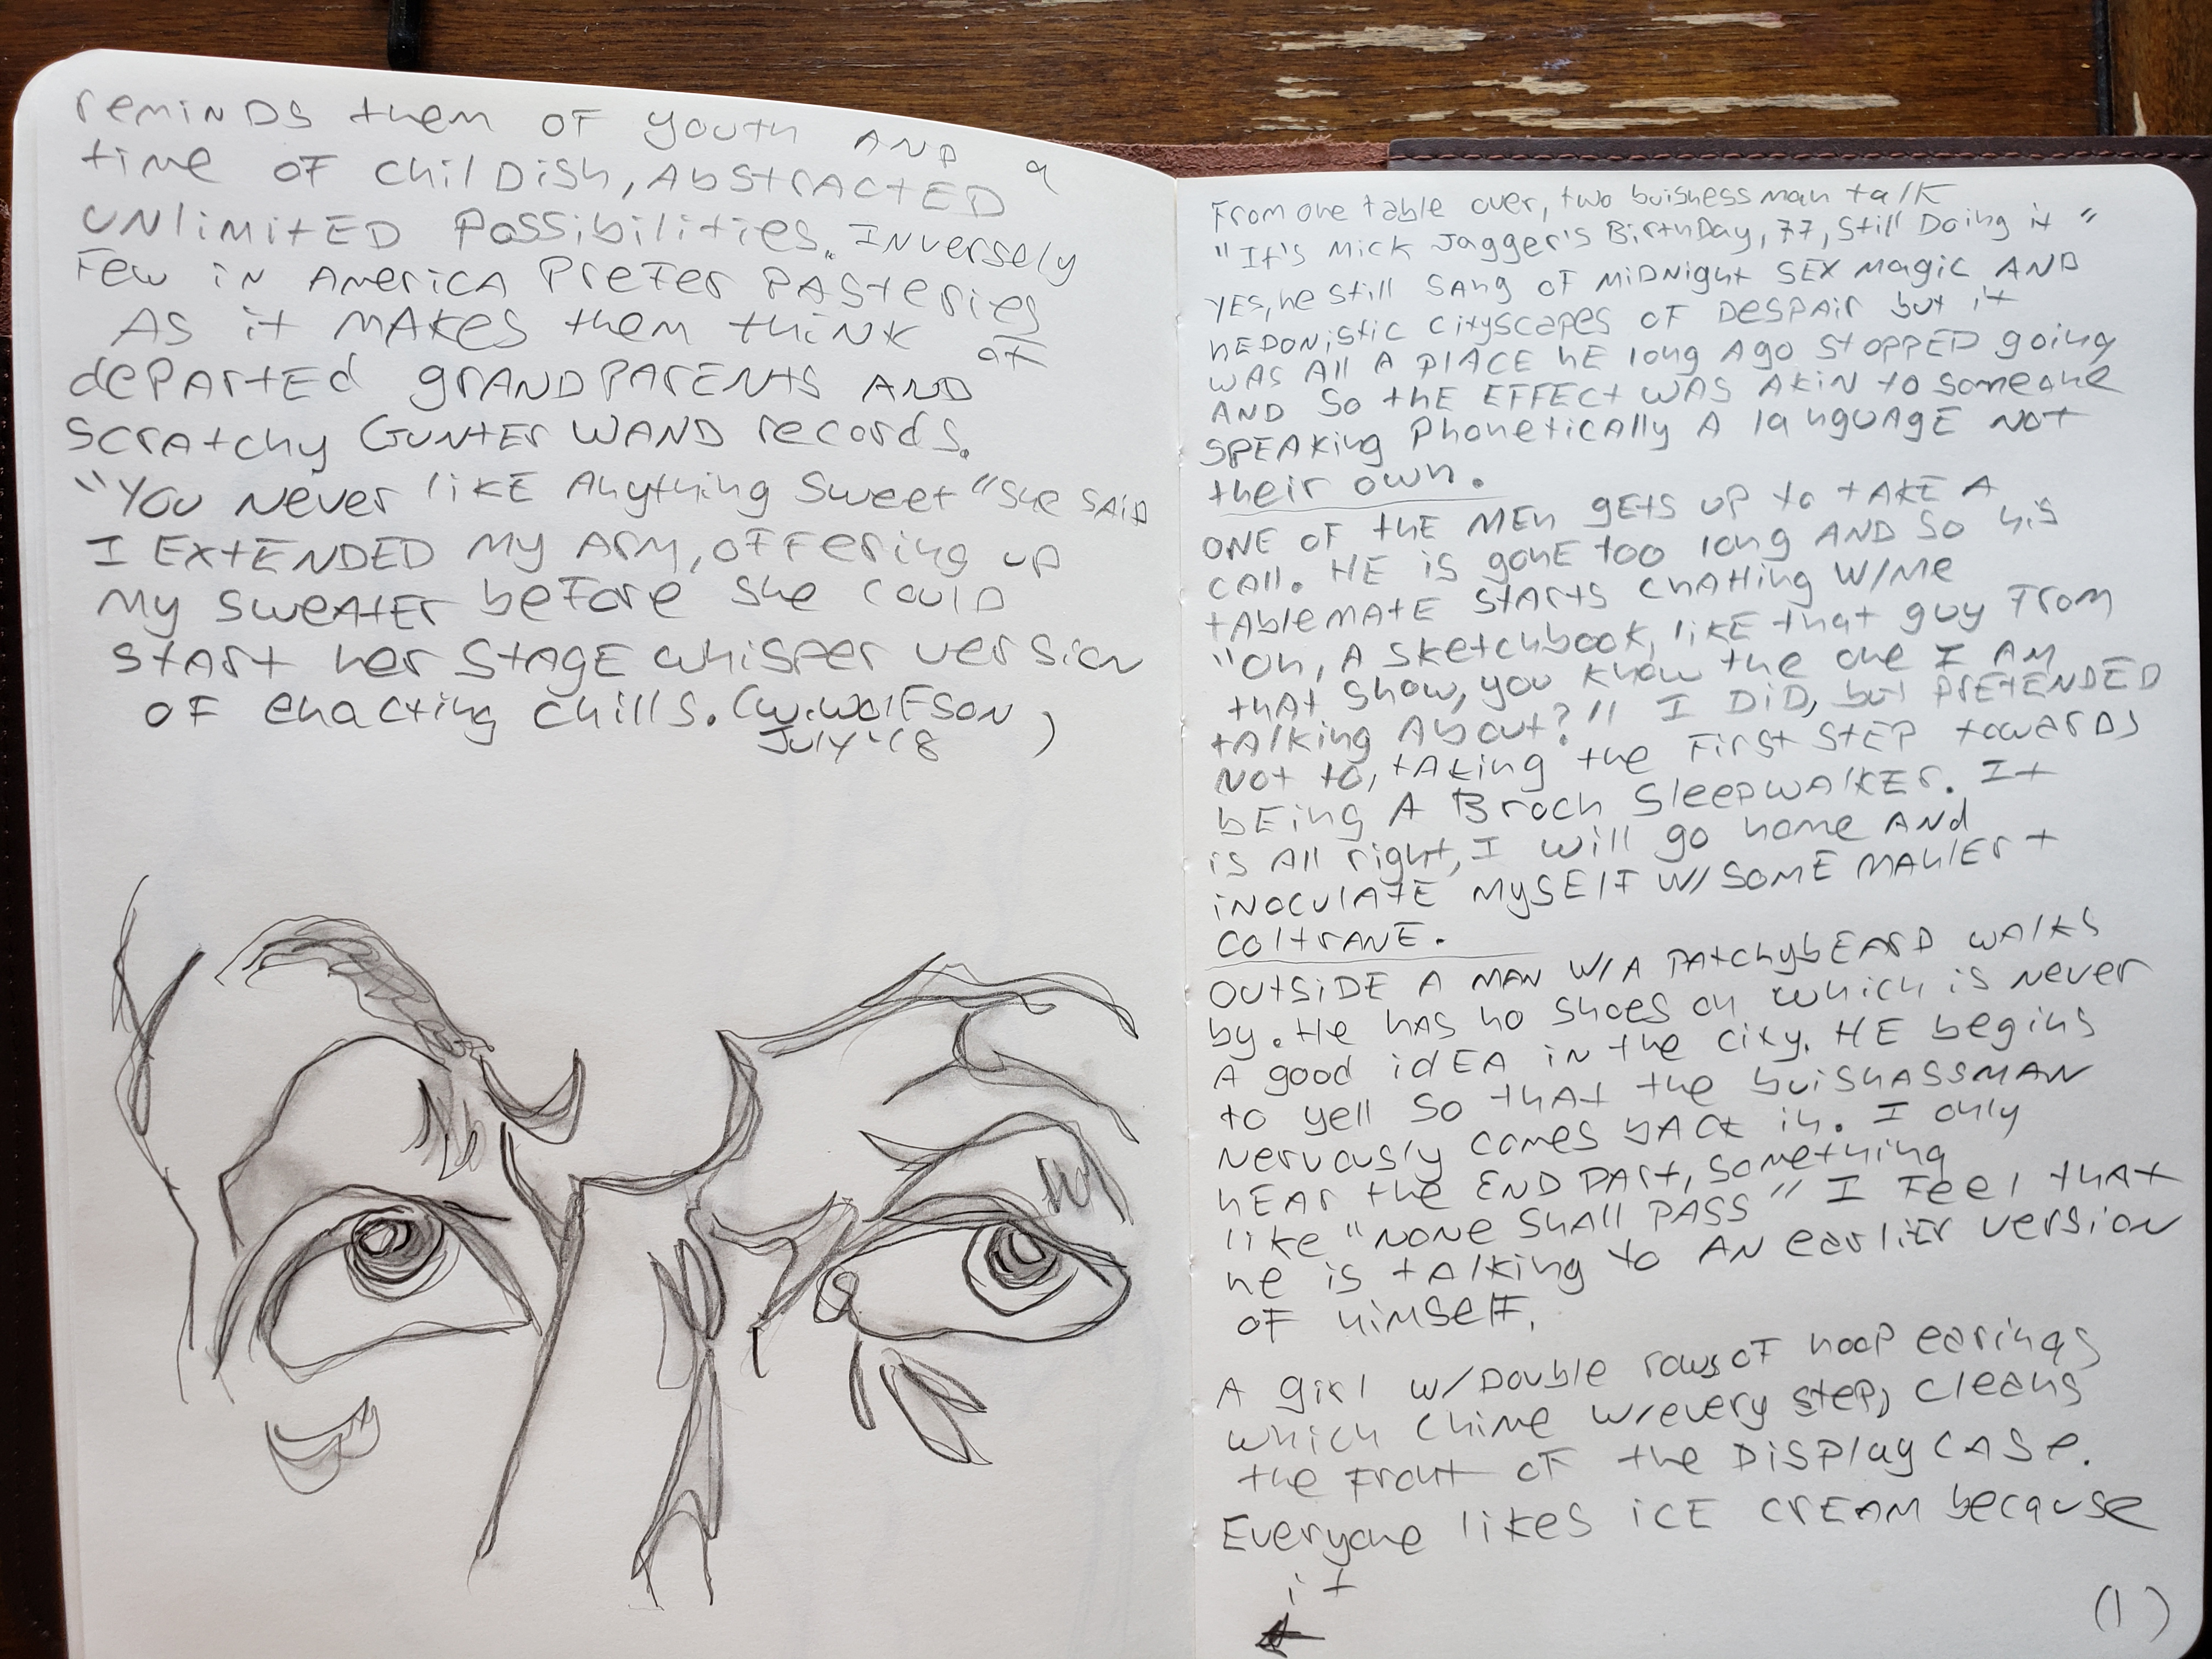 From one table over, two buisness man talk
"It's Mick Jagger's BirthDay, 77, still Doing it"
YES, he still SANg OF MIDNight SEX MAgiC AND
hEDONistic cityscapes OF DESPAir but it
WAS All A PlACE hE long Ago stOPPED going
AND So thE EFFECt WAS AKiN to someone
SPEAKing PhonetiCAlly A lANgUAgE Not
their own.
ONE OF thE MEN gEtS UP to tAKE A
CAll. HE iS gonE too long AND SO his
tAblEMAtE StArtS chAtting W/ME
"Oh, A Sketchbook, likE that guy From
that show, you know the one I AM
tAlking About?" I DiD, but PrEtENDED
Not to, tAking the First StEP towArDS
bEing A Broch SleepwAlKEr. It
iS All right, I will go home ANd
iNOCUlAtE MySElF W/ SOME MAhlEr +
ColtrANE.
OUtSiDE A MAN W/A PAtchybEArD WAlkS
by. He hAS no shoes on which is Never
A good idEA iN the city. HE begins
to yell so thAt the buishASSMAN
Nervously comes bACK in. I only
hEAr thE END PArt, SOMEthing
likE "NONE ShAll PASS" I FEEl thAt
he is tAlking to AN earliEr VErSiON
OF himSElF.
A girl w/Double rows OF hoop earings
which chime w/every step, cleans
the Front oF the DiSPlAy CASE.
Everyone likes iCE CrEAM because
it
(1)
reMiNDS them OF youth AND a
time OF chilDish, AbStrACtED
UNliMitED PossibilitieS. INversely
Few iN AMEriCA PreFer PASteries
AS it MAKES them thiNK oF
dEPArtEd grANDPArENtS AND
SCrAtchy GUNtEr WAND records.
"You Never likE Anything Sweet" She SAiD
I EXtENDED My ArM, oFFering up
My SWEAtEr beFore she CoulD
StArt her StAgE whisper version
OF enacting chills. (W.WolFSON
July '18 )